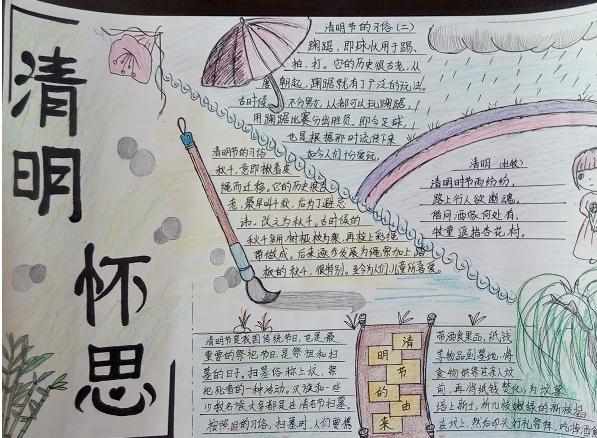 清明
怀思
清明节的习俗(二)
蹴鞠,即球状用于踢、
拍、打。它的历史很古老,从
唐朝起,蹴鞠就有了广泛的玩法。
古时候,不分男女,人都可以玩蹴鞠,
用蹴鞠比赛分出胜负,即今足球,
也是根据那时流传下来
如今人们十分爱玩。
清明节的习俗
秋千,意即揪着皮
绳而迁移。它的历史很古
老,最早叫千秋,后为了避忌
讳,改之为秋千。古时候的
秋千多用树桠枝为架,再拴上彩带
做成,后来逐步发展为绳索加上踏
板的秋千,很特别。至今为人们儿童所喜爱。
清明 (杜牧)
清明时节雨纷纷,
路上行人欲断魂。
借问酒家何处有,
牧童遥指杏花村。
清明节是我国传统节日,也是最
重要的祭祀节日,是祭祖和扫
墓的日子。扫墓俗称上坟,祭
祀死者的一种活动。汉族和一些
少数民族大多都是在清明节扫墓。
按照旧的习俗,扫墓时,人们要携
清明节的由来
带酒食果品、纸钱
等物品到墓地,将
食物供祭在亲人坟
前,再将纸钱焚化,为坟墓
培上新土,折几枝嫩绿的新枝插
在坟上,然后叩头行礼祭拜,